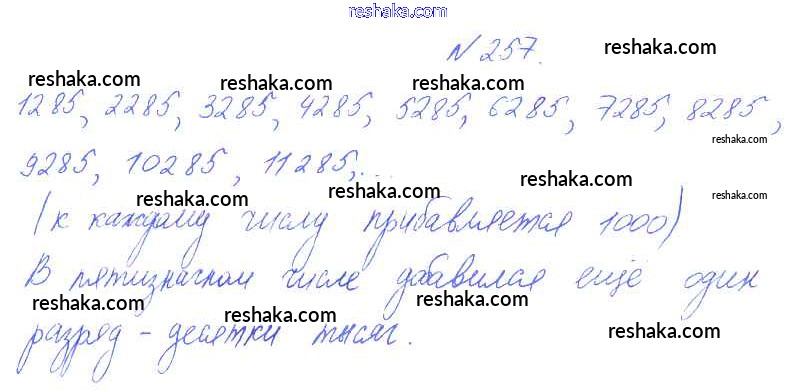 reshaka.com
N 257. reshaka.com
reshaka.com reshaka.com reshaka.com
1285, 2285, 3285, 4285, 5285, 6285, 7285, 8285,
reshaka.com
9285, 10285, 11285,...
reshaka.com reshaka.com reshaka.com
(к каждому числу прибавляется 1000)
В пятизначном числе добавился ещё один
reshaka.com reshaka.com reshaka.com reshaka.com
разряд - десятки тысяч.